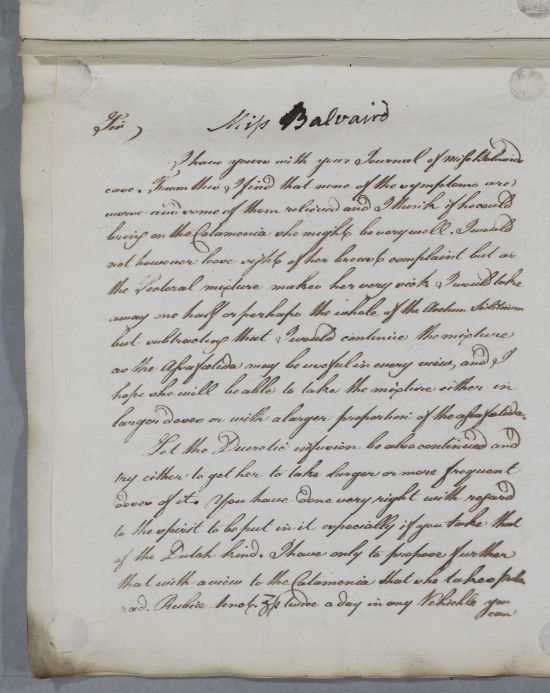 Miss Balvaird
Sir,
I have yours with your Journal of Miss Balvairds
case. From this I find that none of the symptoms are
worse and some of them relieved and I think if he could
bring on the Catamenia she might be very well. I would
not however lose sight of her breast complaint but as
the Pectoral mixture makes her very sick I would take
away one half or perhaps the whole of the Acetum Scilliticum
but subtracting that I would continue the mixture
as the Assafœtida may be useful in every view, and I
hope she will be able to take the mixture either in
larger doses or with a larger proportion of the assafœtida.
Let the Diuretic infusion be also continued and
try either to get her to take larger or more frequent
doses of it. You have done very right with regard
to the spirit to be put in it especially if you take that
of the Dutch kind. I have only to propose further
that with a view to the Catamenia that she take
rad. Rubiæ tinct. ʒſs twice a day in any Vehichle you
can